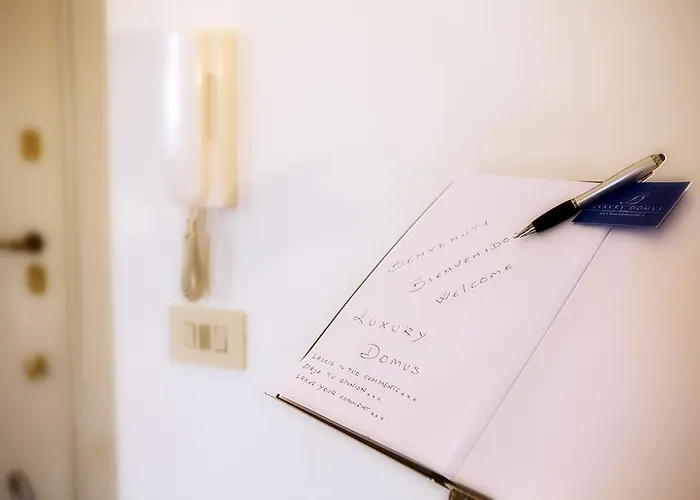 BENVENUTI
BIENVENIDO
WELCOME
LUXURY
DOMUS
LASCIA IL TUO COMMENTO...
DEJA TU OPINION...
LEAVE YOUR COMMENT...
LUXURY DOMUS